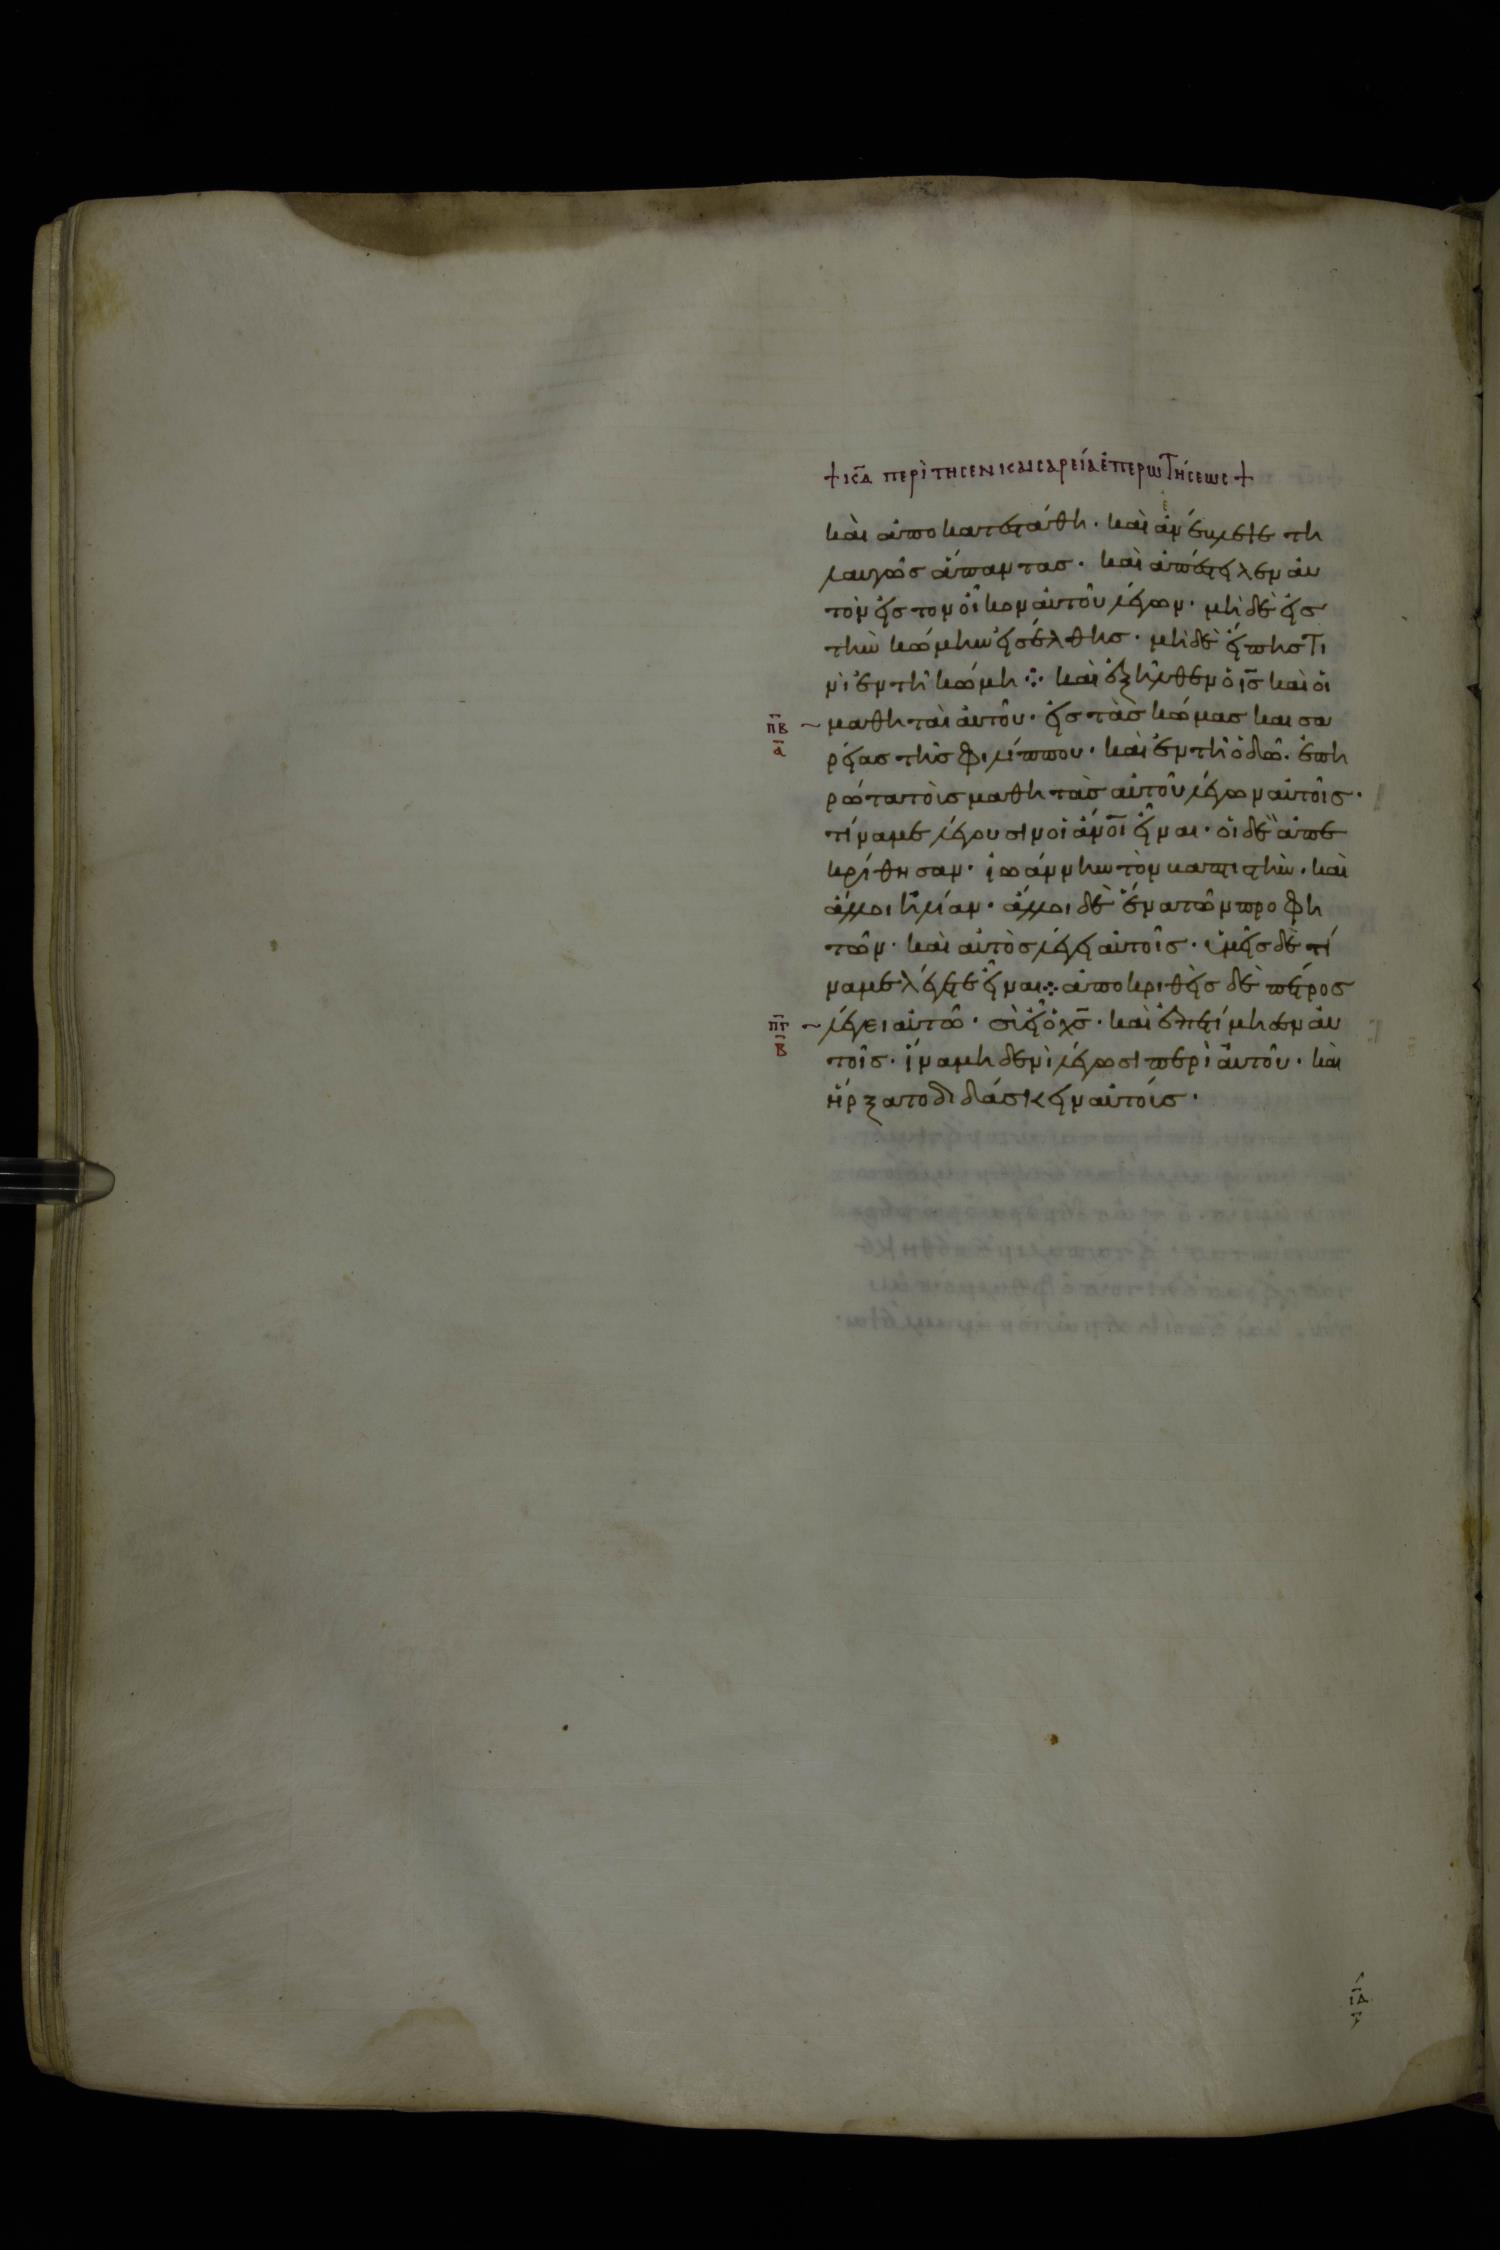 + κδ̅ περὶ τῆς ἐν καισαρεία ἐπερωτήσεως +
καὶ ἀποκατεστάθη· καὶ ἀνέβλεψε τη
λαυγῶς ἅπαντας· καὶ ἀπέστειλεν αὐ
τὸν εἰς τον οἶκον αὐτοῦ λέγων· μὴ δὲ εἰς
τὴν κώμην εἰσέλθης· μὴ δὲ εἴπης τι
νὶ ἐν τῆ κώμη ⁘ καὶ ἐξῆλθεν ὁ ι̅ς̅ καὶ οἱ
πβ̅ α̅ ~ μαθηταὶ αὐτοῦ· εἰς τὰς κώμας και σα
ρείας τῆς φιλίππου· καὶ ἐν τῆ ὁδῶ· ἐπη
ρώτα τοὺς μαθητὰς αὐτοῦ λέγων αὐτοῖς·
τίνα με λέγουσιν οἱ ἄν̅ο̅ι̅ εἶναι· οἱ δὲ ἀπε
κρίθησαν· ἰωάννην τὸν βαπτιστὴν· καὶ
ἄλλοι ἠλίαν· ἄλλοι δὲ ἕνα τῶν προφη
τῶν· καὶ αὐτὸς λέγει αὐτοῖς· ὑμεῖς δὲ τί
να με λέγετε εἶναι ⁘ ἀποκριθεὶς δὲ πέτρος
πγ̅ β̅ ~ λέγει αὐτῶ· σὺ εἶ ὁ χ̅ς̅· καὶ ἐπετίμησεν αὐ
τοῖς· ἵνα μηδενὶ λέγωσι περὶ αὐτοῦ· καὶ
ἤρξατο διδάσκειν αὐτούς·
ιδ̅